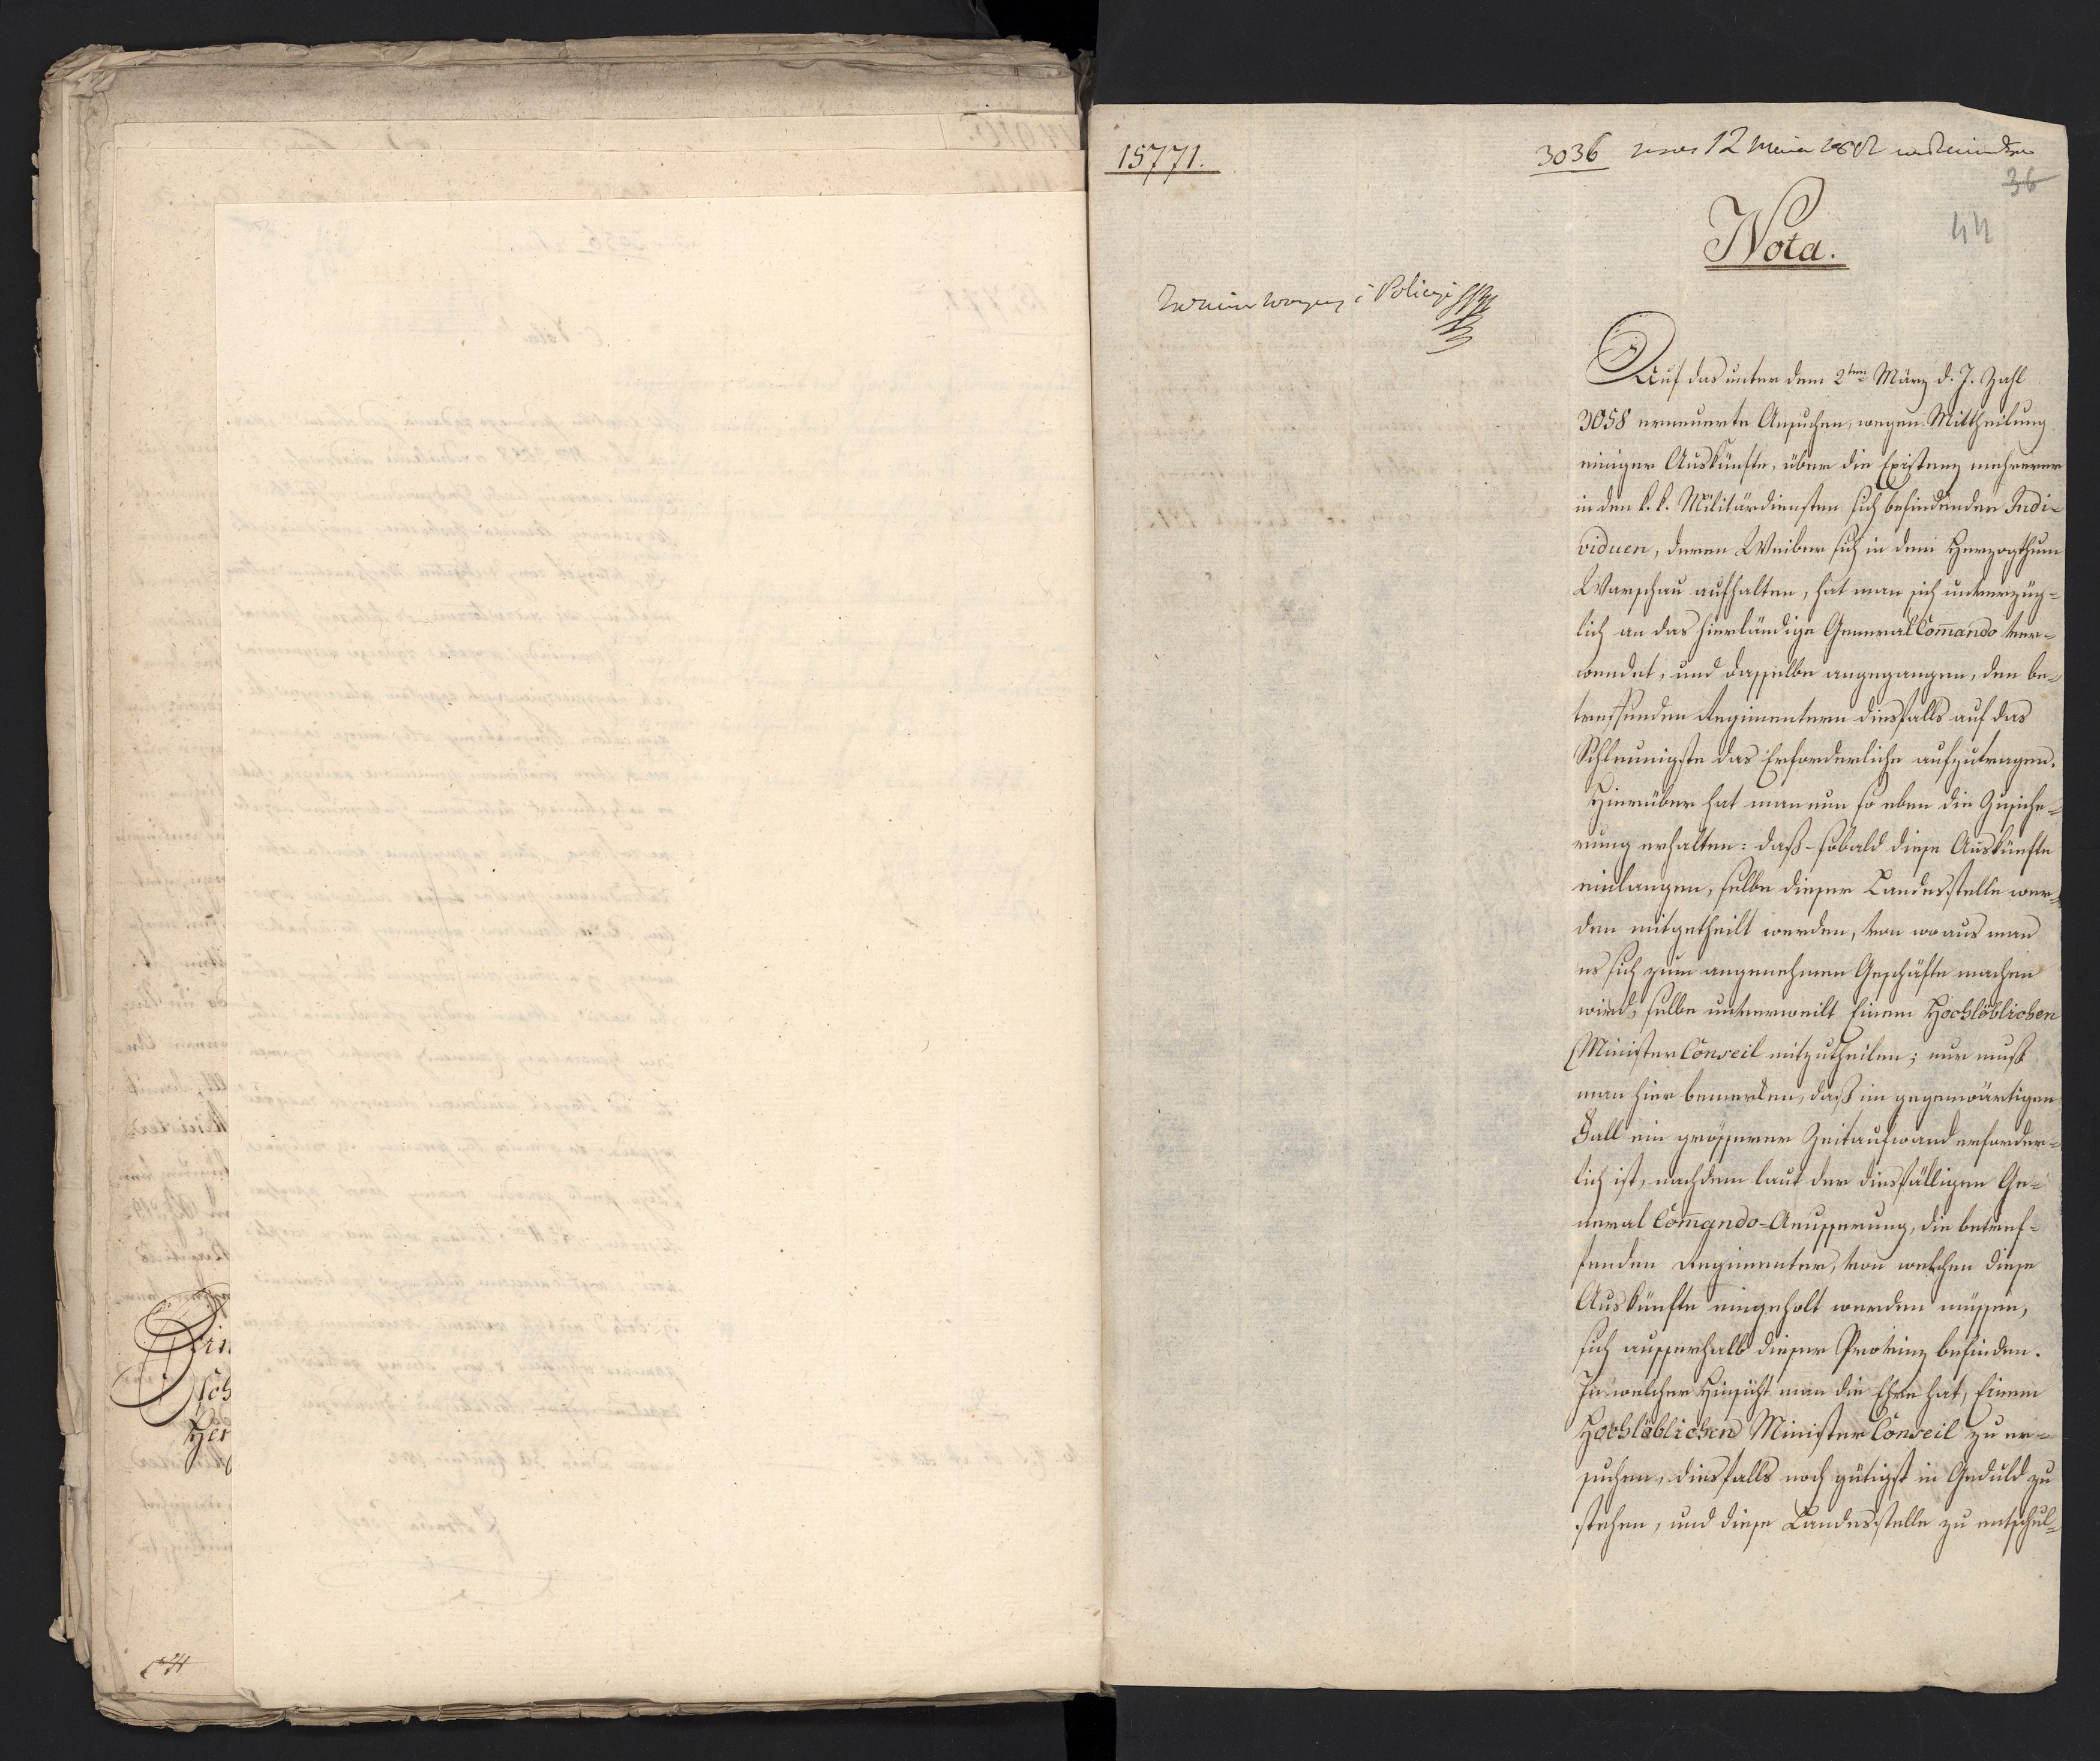 15771.
3036 12 1812
36
44
Nota.
i Policyi
Auf das unter dem 2ten März d. J. Zahl
3058 erneuerte Ansuchen, wegen Mittheilung
einiger Auskünfte, über die Existenz mehrerer
in den k. k. Militärdiensten sich befindenden Indi-
viduen, deren Weiber sich in dem Herzogthum
Warschau aufhalten, hat man sich unverzüg-
lich an das hierländige General Com̅ando ver-
wendet, und dasselbe angegangen, den be-
treffenden Regimentern diesfalls auf das
Schleunigste das Erforderliche aufzutragen.
Hierüber hat man nun so eben die Zusiche-
rung erhalten: daß - sobald diese Auskünfte
einlangen, selbe dieser Landesstelle wer-
den mitgetheilt werden, von wo aus man
es sich zum angenehmen Geschäfte machen
wird, selbe unverweilt Einem Hochlöblichen
Minister Conseil mitzutheilen; nur muß
man hier bemerken, daß im gegenwärtigen
Fall ein grösserer Zeitaufwand erforder-
lich ist, nachdem laut der diesfälligen Ge-
neral Com̅ando-Aeusserung, die betref-
fenden Regimenter, von welchen diese
Auskünfte eingeholt werden müssen,
sich ausserhalb dieser Provinz befinden.
In welcher Hinsicht man die Ehre hat, Einen
Hochlöblichen Minister Conseil zu er-
suchen, diesfalls noch gütigst in Geduld zu
stehen, und diese Landesstelle zu entschul-